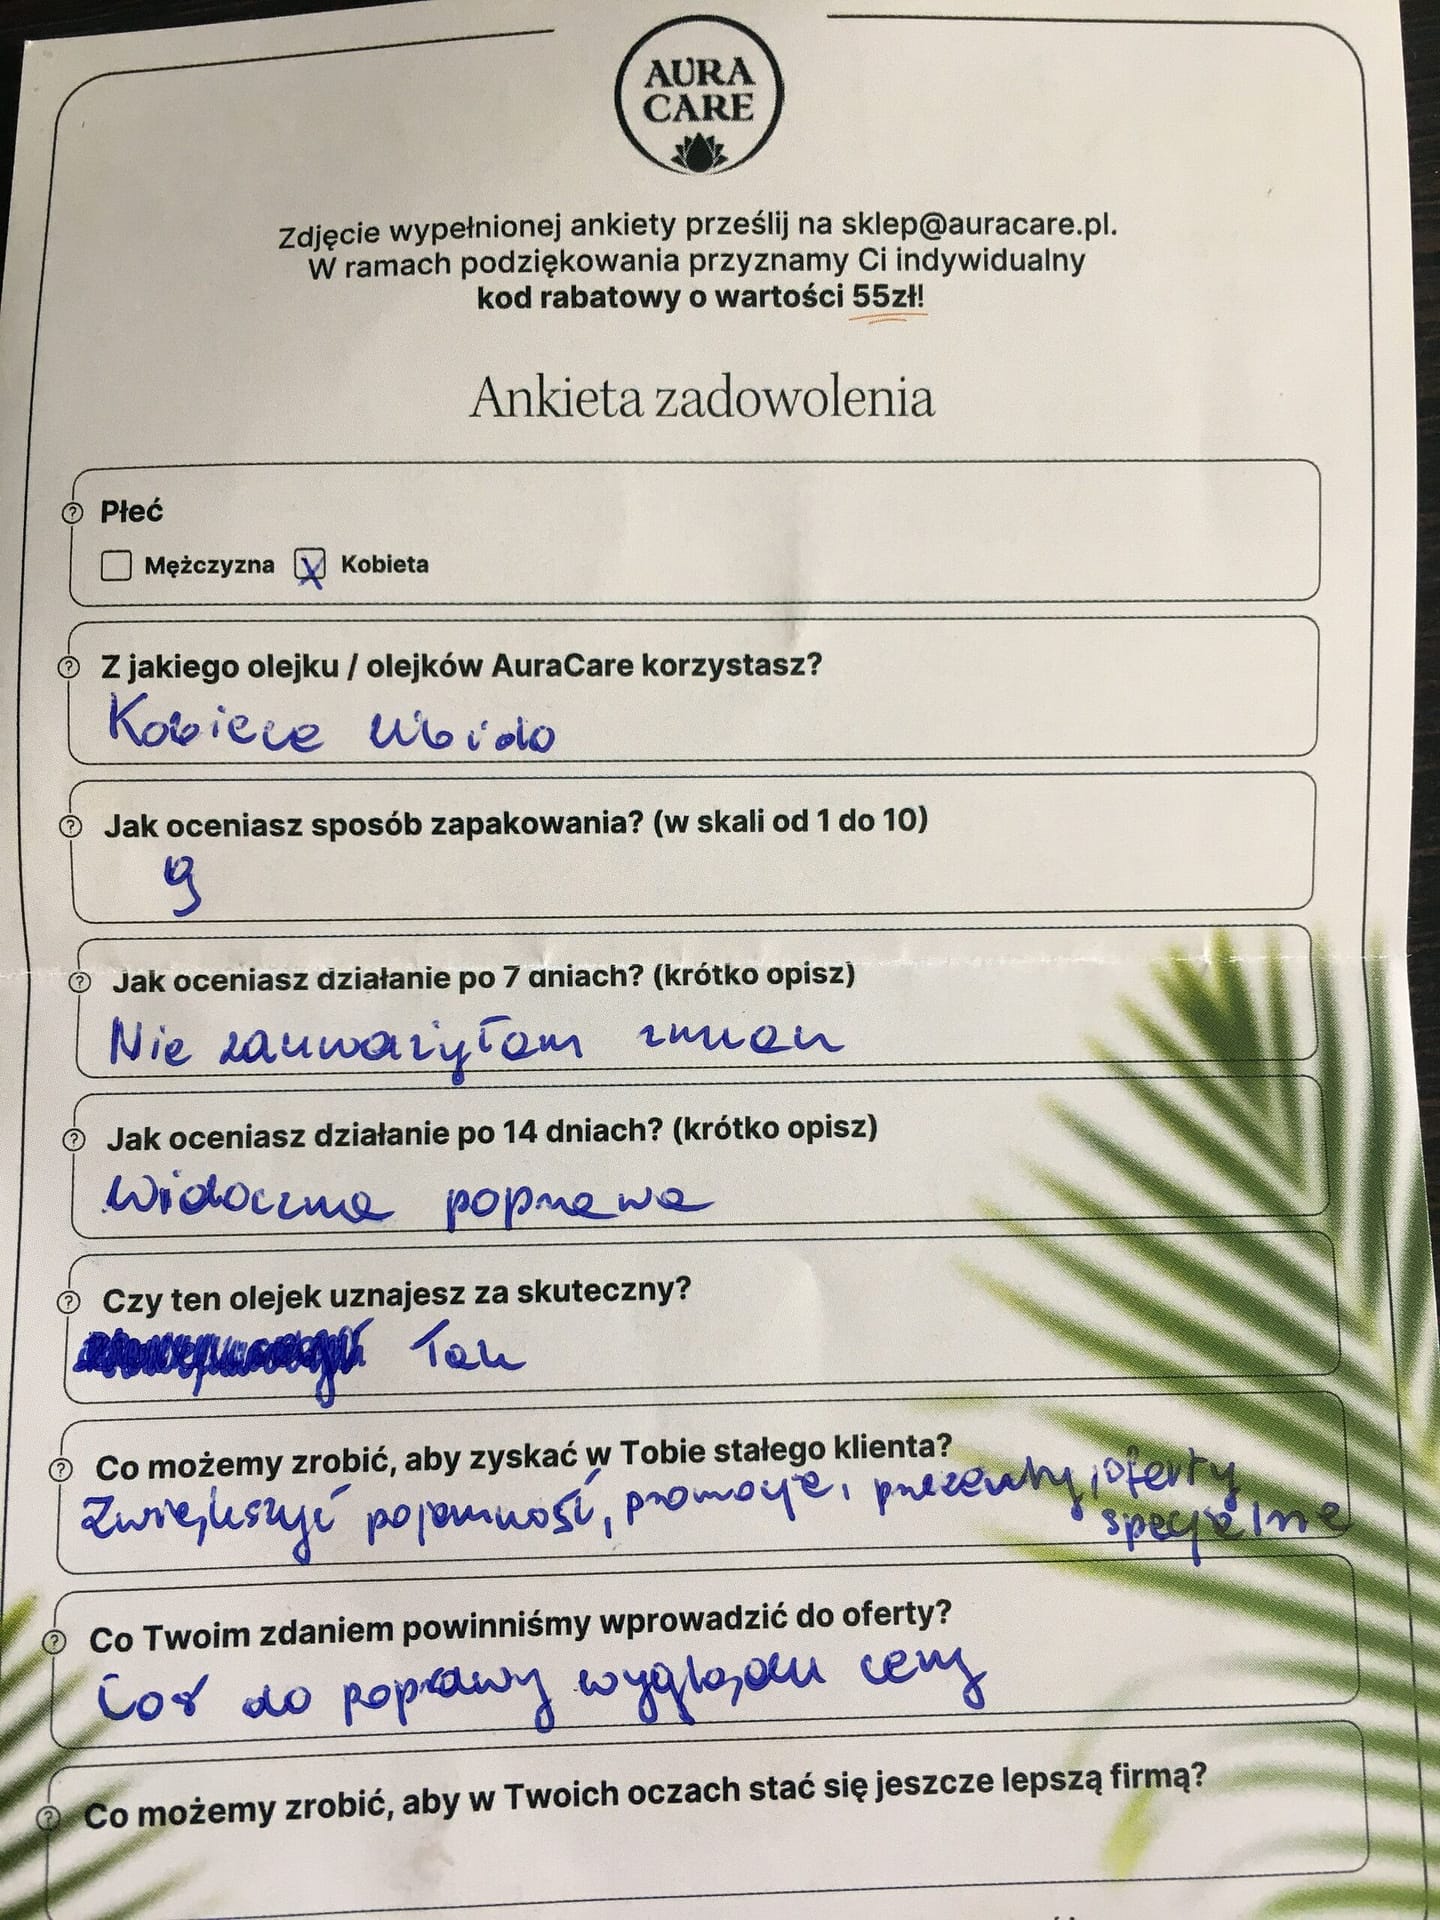 AURA
CARE
Zdjęcie wypełnionej ankiety prześlij na sklep@auracare.pl.
W ramach podziękowania przyznamy Ci indywidualny
kod rabatowy o wartości 55zł!
Ankieta zadowolenia
Płeć
Mężczyzna X Kobieta
Z jakiego olejku / olejków AuraCare korzystasz?
Kobiece libido
Jak oceniasz sposób zapakowania? (w skali od 1 do 10)
9
Jak oceniasz działanie po 7 dniach? (krótko opisz)
Nie zauważyłam zmian
Jak oceniasz działanie po 14 dniach? (krótko opisz)
Widoczna poprawa
Czy ten olejek uznajesz za skuteczny?
Tak
Co możemy zrobić, aby zyskać w Tobie stałego klienta?
Zwiększyć pojemność, promocje, prezenty, oferty
specjalne
Co Twoim zdaniem powinniśmy wprowadzić do oferty?
Coś do poprawy wyglądu cery
Co możemy zrobić, aby w Twoich oczach stać się jeszcze lepszą firmą?